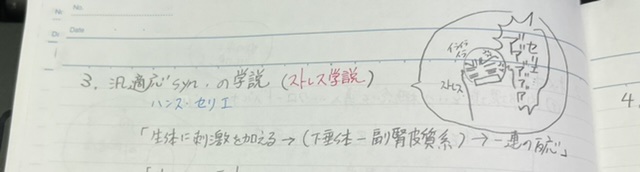 No.
Date
3. 汎適応syn.の学説（ストレス学説）
ハンス・セリエ
「生体に刺激を加える→（下垂体－副腎皮質系）→一連の反応」
イライラ
ストレス
セリエ
4.